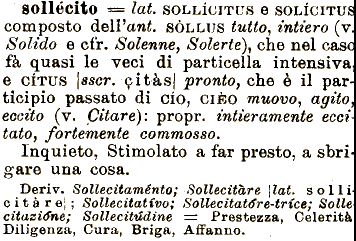 sollécito = lat. SOLLÍCITUS e SOLÍCITUS
composto dell'ant. SÒLLUS tutto, intiero (v.
Solido e cfr. Solenne, Solerte), che nel caso
fà quasi le veci di particella intensiva,
e CÍTUS |sscr. çitàs| pronto, che è il par-
ticipio passato di CÍO, CIÈO muovo, agito,
eccito (v. Citare): propr. intieramente ecci-
tato, fortemente commosso.
Inquieto, Stimolato a far presto, a sbri-
gare una cosa.
Deriv. Sollecitaménto; Sollecitàre |lat. solli-
citàre|; Sollecitatívo; Sollecitatóre-tríce; Solle-
citazióne; Sollecitúdine = Prestezza, Celerità
Diligenza, Cura, Briga, Affanno.